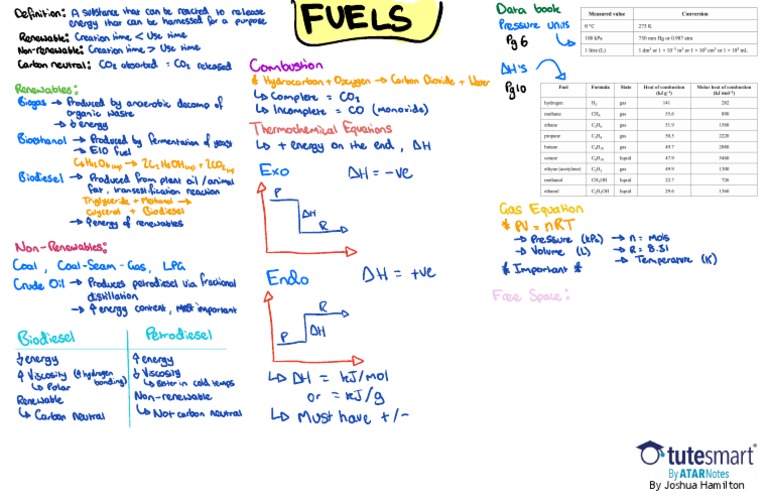 Definition: A substance that can be reacted to release
energy that can be harnessed for a purpose
Renewable: Creation time < Use time
Non-renewable: Creation time > Use time
Carbon neutral: CO₂ absorbed = CO₂ released
Renewables:
Biogas → Produced by anaerobic decomp of
organic waste
→ ↓ energy
Bioethanol → Produced by fermentation of yeast
→ E10 Fuel
→ 2C₂H₅OH + 2CO₂
Biodiesel → Produced from plant oil /animal
fat, transesterification reaction
Triglyceride + Methanol →
Glycerol + Biodiesel
→ ↑ energy of renewables
Non-Renewables:
Coal, Coal-Seam-Gas, LPG
Crude Oil → Produces petrodiesel via fractional
distillation
→ ↑ energy content, most important
Biodiesel
↓ energy
↑ Viscosity (↑ hydrogen
bonding)
↳ Polar
Renewable
↳ Carbon neutral
Petrodiesel
↑ energy
↓ Viscosity
↳ Better in cold temps
Non-renewable
↳ Not carbon neutral
FUELS
Combustion
* Hydrocarbon + Oxygen → Carbon Dioxide + Water
↳ Complete = CO₂
↳ Incomplete = CO (monoxide)
Thermochemical Equations
↳ + energy on the end, ΔH
Exo ΔH = -ve
P
ΔH
R
Endo ΔH = +ve
R
P ΔH
↳ ΔH = kJ/mol
or = kJ/g
↳ Must have +/-
Data book
Pressure units
Pg 6
Measured value Conversion
0 °C 273 K
100 kPa 750 mm Hg or 0.987 atm
1 litre (L) 1 dm³ or 1 × 10⁻³ m³ or 1 × 10³ cm³ or 1 × 10³ mL
ΔH's
Pg 10
Fuel Formula State Heat of combustion (kJ g⁻¹) Molar heat of combustion (kJ mol⁻¹)
hydrogen H₂ gas 141 282
methane CH₄ gas 55.6 890
ethane C₂H₆ gas 51.9 1560
propane C₃H₈ gas 50.5 2220
butane C₄H₁₀ gas 49.7 2880
octane C₈H₁₈ liquid 47.9 5460
ethyne (acetylene) C₂H₂ gas 49.9 1300
methanol CH₃OH liquid 22.7 726
ethanol C₂H₅OH liquid 29.6 1360
Gas Equation
* PV = nRT
→ Pressure (kPa) → n = mols
→ Volume (L) → R = 8.31
→ Temperature (K)
* Important *
Free Space:
tutesmart
By ATARNotes
By Joshua Hamilton